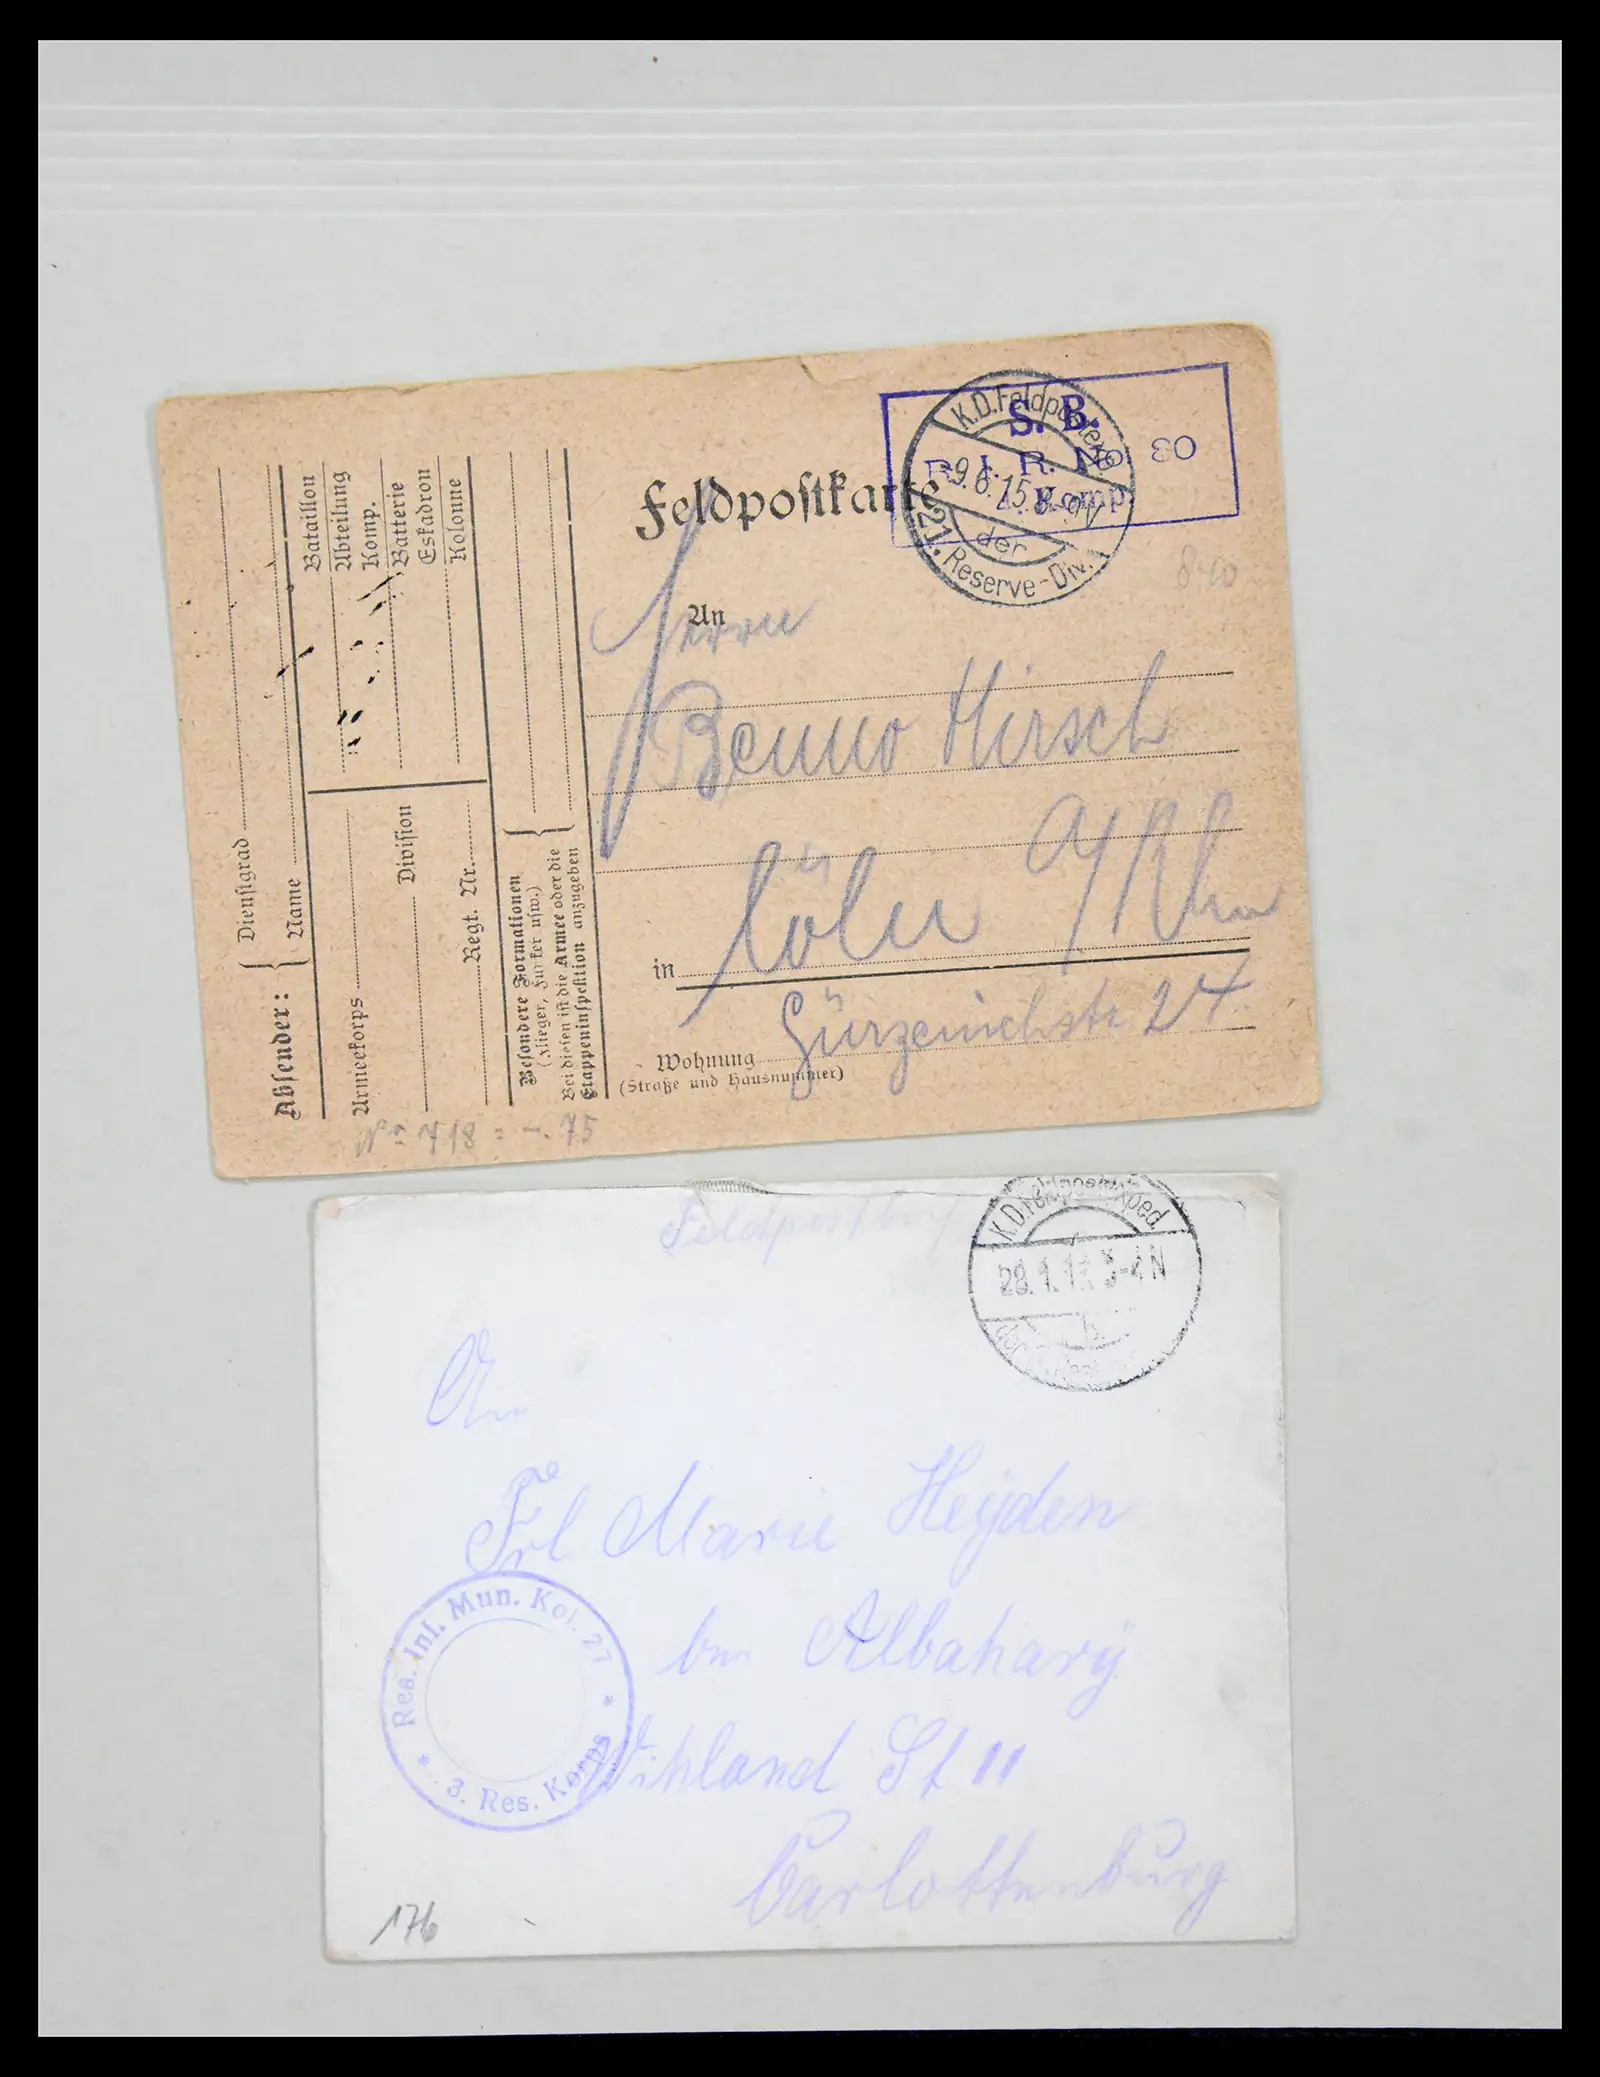 Feldpostkarte
S. B.
R. I. R. No. 80
Komp.
K.D.Feldpostexp.
9.6.15
der
21. Reserve-Div.
8-10
An
Herrn
Benno Hirsch
in Cöln a/Rhn
Wohnung Gürzenichstr 27.
(Straße und Hausnummer)
Absender:
Dienstgrad
Name
Armeekorps
Division
Regt. Nr.
Bataillon
Abteilung
Komp.
Batterie
Eskadron
Kolonne
Besondere Formationen
(Flieger, Funker usw.)
Bei diesen ist die Armee oder die
Etappeninspektion anzugeben
No 718 = -.75
Feldpostbrief
K.D.Feldpostexped.
28.1.1 3-4N
der
An
Frl Marie Heyden
bei Albahary
Wihland St 11
Carlottenburg
Res. Inf. Mun. Kol. 27
* 3. Res. Korps *
176